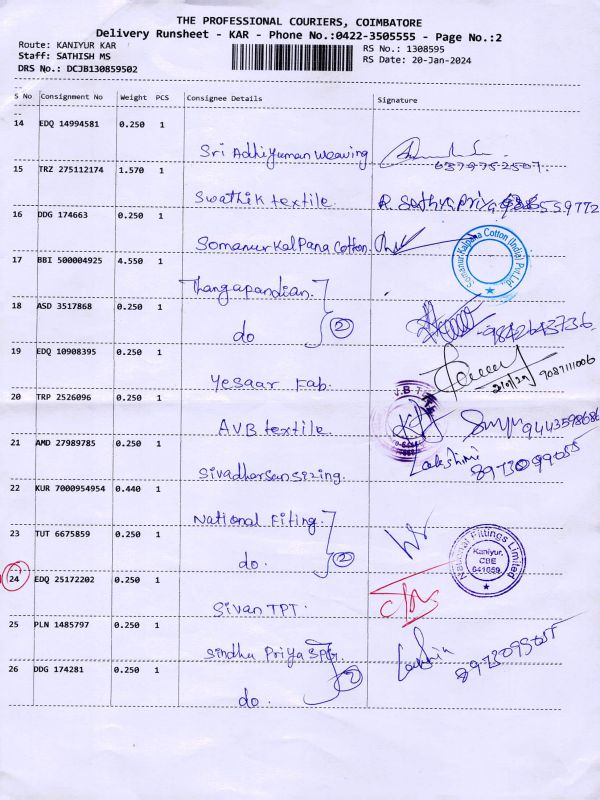 THE PROFESSIONAL COURIERS, COIMBATORE
Delivery Runsheet - KAR - Phone No.:0422-3505555 - Page No.:2
Route: KANIYUR KAR
Staff: SATHISH MS
DRS No.: DCJB130859502
RS No.: 1308595
RS Date: 20-Jan-2024
S No Consignment No Weight PCS Consignee Details Signature
14 EDQ 14994581 0.250 1
Sri Adhiyuman weaving
15 TRZ 275112174 1.570 1
Swathik textile.
16 DDG 174663 0.250 1
Somanur Kalpana Cotton.
Somanur Kalpana Cotton (India) Pvt Ltd.,
17 BBI 500004925 4.550 1
Thangapandian.
18 ASD 3517868 0.250 1
do 2
9842643736.
19 EDQ 10908395 0.250 1
Yesaar Fab.
9087111006
20 TRP 2526096 0.250 1
AVB textile.
21 AMD 27989785 0.250 1
Sivadharsan sizing.
Lakshmi
8973099055
22 KUR 7000954954 0.440 1
National Fiting.
23 TUT 6675859 0.250 1
do. 2
National Fittings Limited
Kaniyur,
CBE
641659
24 EDQ 25172202 0.250 1
Sivan TPT.
25 PLN 1485797 0.250 1
Sindhu Priya SPG.
8973099055
26 DDG 174281 0.250 1
do. 2